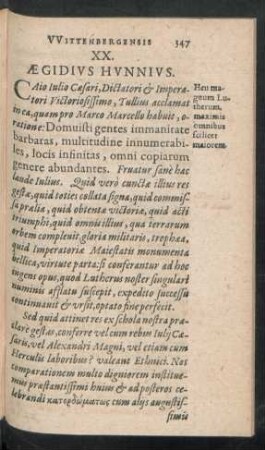 VVITTENBERGENSIS 347
XX.
ÆGIDIVS HVNNIVS.
CAio Iulio Cæsari, Dictatori & Impera-
tori Victoriosissimo, Tullius acclamat
in ea, quam pro Marco Marcello habuit, o-
ratione: Domuisti gentes immanitate
barbaras, multitudine innumerabi-
les, locis infinitas, omni copiarum
genere abundantes. Fruatur sanè hac
laude Iulius. Quid verò cunctæ illius res
gestæ, quid toties collata signa, quid commis-
sa prælia, quid obtentæ victoriæ, quid acti
triumphi, quid omnis illius, qua terrarum
orbem compleuit, gloria militaris, trophæa,
quid Imperatoriæ Maiestatis monumenta
bellica, virtute parta: si conferantur ad hoc
ingens opus, quod Lutherus noster singulari
numinis afflatu suscepit, expedito successu
continuauit & vrsit, optato fine perfecit.
Sed quid attinet res ex schola nostra præ-
clarè gestas, conferre vel cum rebus Iulij Cæ-
saris, vel Alexandri Magni, vel etiam cum
Herculis laboribus? valeant Ethnici. Nos
comparationem multo digniorem institue-
mus præstantissimi huius & ad posteros ce-
lebrandi κατορθώματος cum alijs augustis-
simis
Heu ma-
gnum Lu-
therum,
maximis
omnibus
scilicet
maiorem.